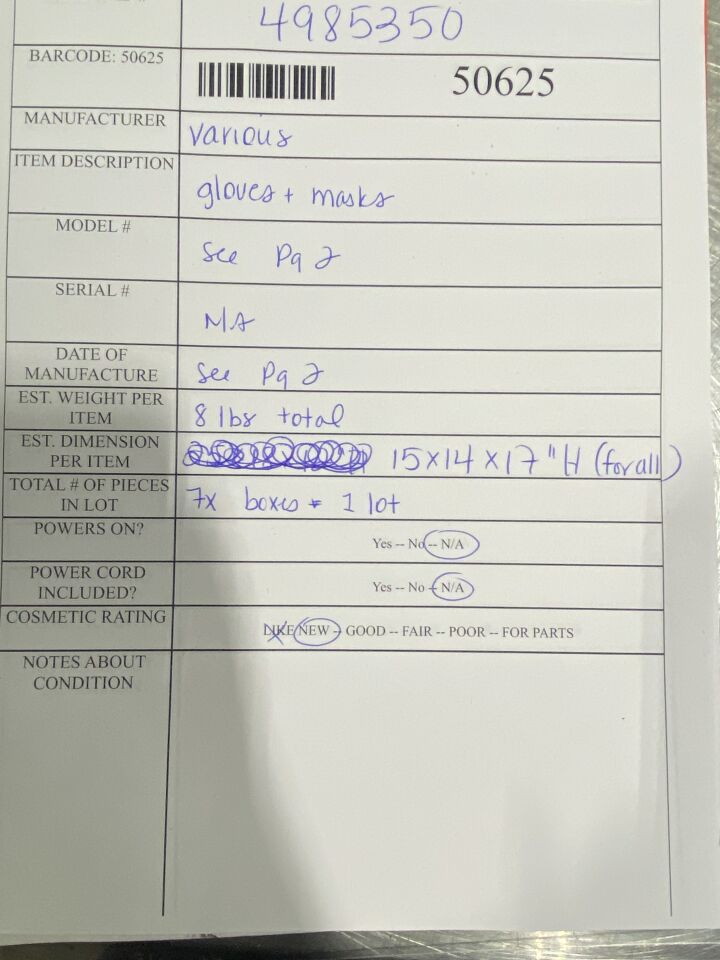 4985350
BARCODE: 50625
50625
MANUFACTURER
various
ITEM DESCRIPTION
gloves + masks
MODEL #
See Pg 2
SERIAL #
NA
DATE OF
MANUFACTURE
See Pg 2
EST. WEIGHT PER
ITEM
8 lbs total
EST. DIMENSION
PER ITEM
15x14x17"H (for all)
TOTAL # OF PIECES
IN LOT
7x boxes = 1 lot
POWERS ON?
Yes -- No -- N/A
POWER CORD
INCLUDED?
Yes -- No -- N/A
COSMETIC RATING
LIKE NEW -- GOOD -- FAIR -- POOR -- FOR PARTS
NOTES ABOUT
CONDITION